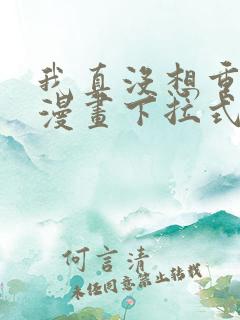 我真没想重
漫畫下拉式
何言清
未经同意禁止转载